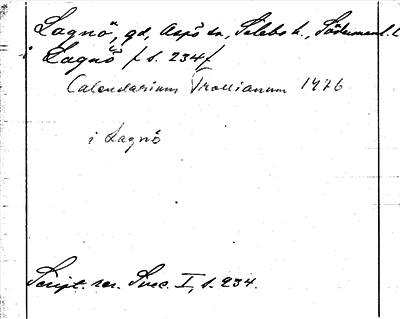 Lagnö, gd, Aspö sn, Selebo h., Södermanl. l
i Lagnö / s. 234 /
Calendarium Trolleianum 1476
i Lagnö
Script. rer. Svec. I, s. 234.